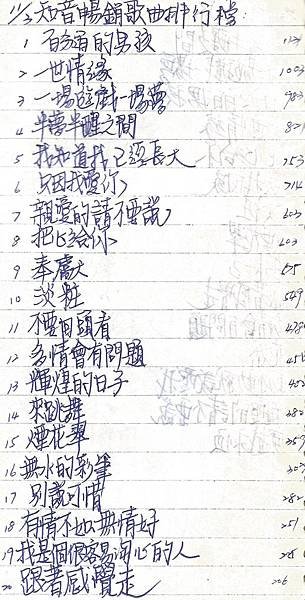 11/2知音暢銷歌曲排行榜
1 百分百的男孩 1124
2 一世情緣 1003
3 一場遊戲一場夢 983
4 半夢半醒之間 821
5 我知道我已經長大 753
6 只因我愛你 714
7 親愛的請不要說 603
8 把心給你 603
9 奉獻 575
10 淡粧 549
11 不要回頭看 478
12 多情會有問題 45
13 輝煌的日子 40
14 來跳舞 380
15 煙花翠 357
16 無水的彩筆 307
17 別說小情 282
18 有情不如無情好 251
19 我是個很容易開心的人 228
20 跟著感覺走 206